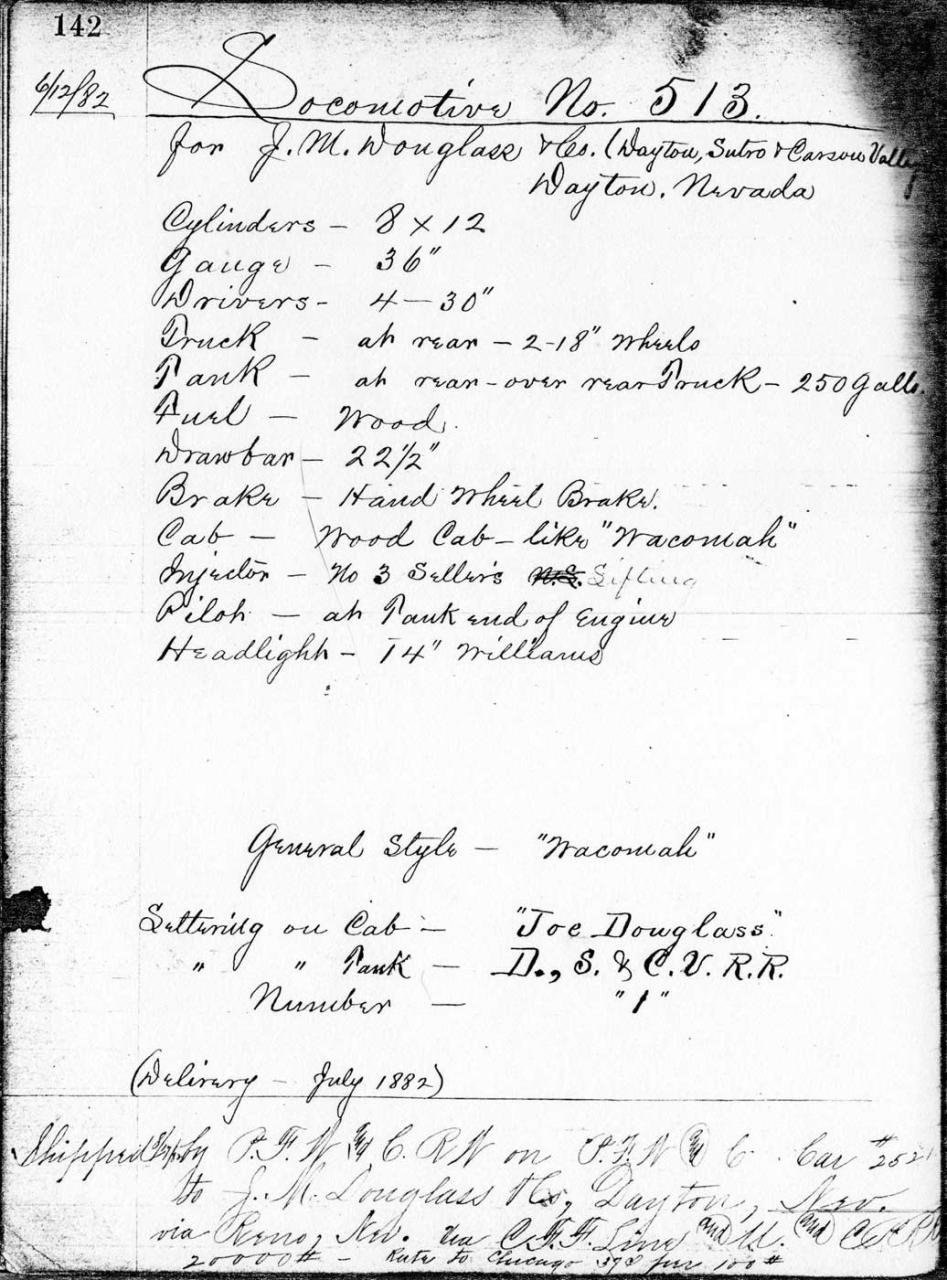 142
6/12/82
Locomotive No. 513.
for J. M. Douglass & Co. (Dayton, Sutro & Carson Valley
Dayton, Nevada
Cylinders - 8 x 12
Gauge - 36"
Drivers - 4 - 30"
Truck - at rear - 2-18" Wheels
Tank - at rear - over rear Truck - 250 Galls.
Fuel - Wood.
Drawbar - 22 1/2"
Brake - Hand Wheel Brake.
Cab - Wood Cab - like "Wacomah"
Injector - No 3 Sellers N.S. Lifting
Pilot - at Tank end of Engine
Headlight - 14" Williams
General Style - "Wacomah"
Lettering on Cab - "Joe Douglass"
" " Tank - D., S. & C. V. R.R.
Number - "1"
(Delivery - July 1882)
Shipped by P. F. W & C. RW on P. F. W & C Car # 252
to J. M. Douglass & Co, Dayton, Nev.
via Reno, Nev. via C F. F. Line and U. and C P R
20000# - Rate to Chicago per 100#